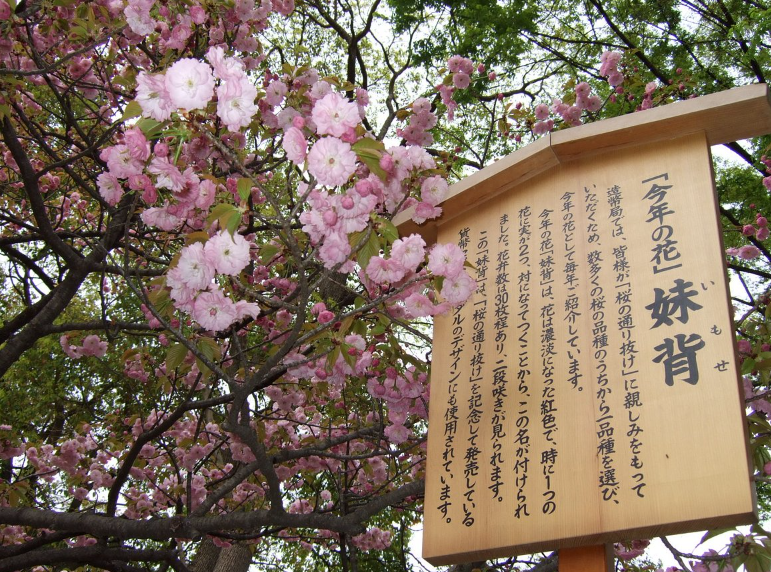 「今年の花」妹背
いもせ
造幣局では、皆様が「桜の通り抜け」に親しみをもって
いただくため、数多くの桜の品種のうちから一品種を選び、
今年の花として毎年ご紹介しています。
今年の花「妹背」は、花は濃淡になった紅色で、時に1つの
花に実が2つ、対になってつくことから、この名が付けられ
ました。花弁数は30枚程あり、二段咲きが見られます。
この「妹背」は、「桜の通り抜け」を記念して発売している
貨幣セ ダルのデザインにも使用されています。